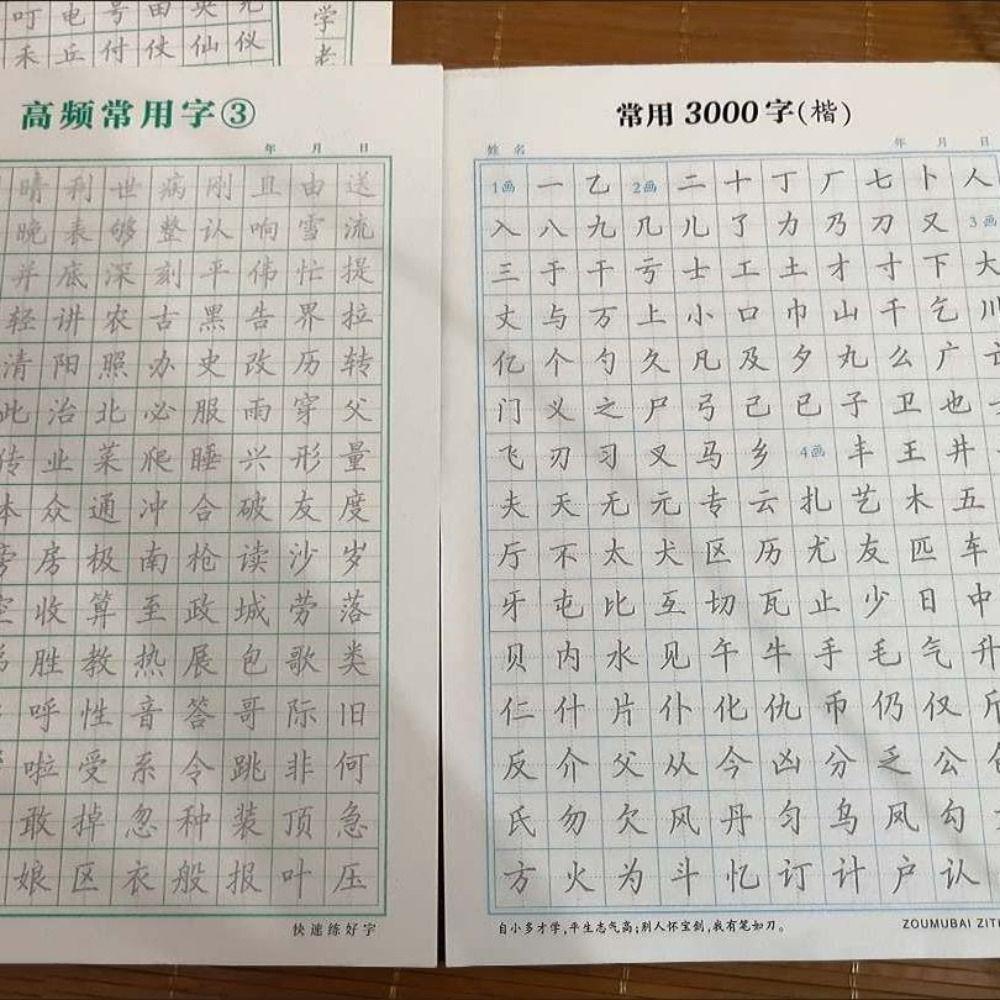 叮 电 号 由 央
禾 丘 付 仗 仙 仪
学
老
高频常用字③
年 月 日
晴 利 世 病 刚 且 由 送
晚 表 够 整 认 响 雪 流
并 底 深 刻 平 伟 忙 提
轻 讲 农 古 黑 告 界 拉
清 阳 照 办 史 改 历 转
此 治 北 必 服 雨 穿 父
传 业 菜 爬 睡 兴 形 量
本 众 通 冲 合 破 友 度
旁 房 极 南 枪 读 沙 岁
空 收 算 至 政 城 劳 落
胜 教 热 展 包 歌 类
呼 性 音 答 哥 际 旧
啦 受 系 令 跳 非 何
敢 掉 忽 种 装 顶 急
娘 区 衣 般 报 叶 压
快速练好字
常用3000字(楷)
姓 名 年 月 日
1画 一 乙 2画 二 十 丁 厂 七 卜 人
入 八 九 几 儿 了 力 乃 刀 又 3画
三 于 干 亏 士 工 土 才 寸 下 大
丈 与 万 上 小 口 巾 山 千 乞 川
亿 个 勺 久 凡 及 夕 丸 么 广
门 义 之 尸 弓 己 已 子 卫 也
飞 刃 习 叉 马 乡 4画 丰 王 井
夫 天 无 元 专 云 扎 艺 木 五
厅 不 太 犬 区 历 尤 友 匹 车
牙 屯 比 互 切 瓦 止 少 日 中
贝 内 水 见 午 牛 手 毛 气 升
仁 什 片 仆 化 仇 币 仍 仅 斤
反 介 父 从 今 凶 分 乏 公
氏 勿 欠 风 丹 匀 乌 凤 勾
方 火 为 斗 忆 订 计 户 认
自小多才学,平生志气高;别人怀宝剑,我有笔如刀。
ZOUMUBAI ZITI